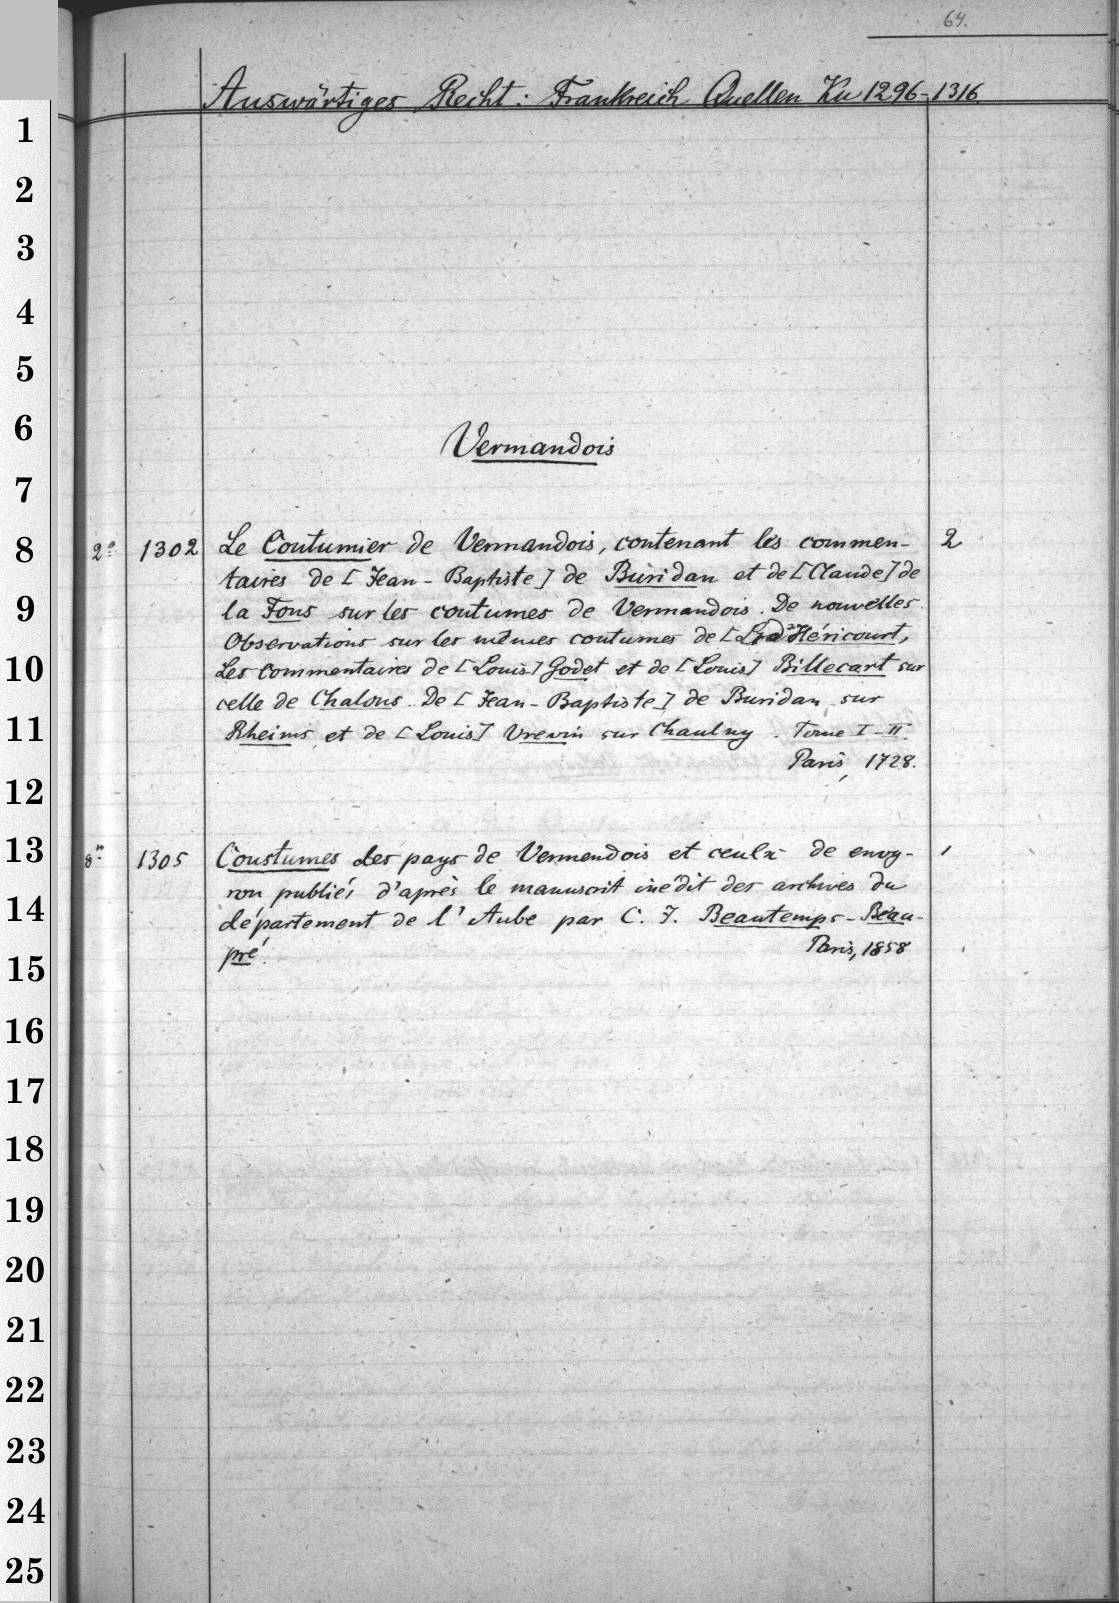 64.
Auswärtiges Recht: Frankreich Quellen Ku 1296-1316
1
2
3
4
5
6
Vermandois
7
8
2° 1302 Le Coutumier de Vermandois, contenant les commen- 2
taires de [Jean-Baptiste] de Buridan et de [Claude] de
9
la Fons sur les coutumes de Vermandois. De nouvelles
Observations sur les mêmes coutumes de d'Héricourt,
10
Les commentaires de [Louis] Godet et de [Louis] Billecart sur
celle de Chalons. De [Jean-Baptiste] de Buridan, sur
11
Rheims, et de [Louis] Vrevin sur Chaulny. Tome I-II.
Paris, 1728.
12
13
8° 1305 Coustumes des pays de Vermendois et ceulx de envy- 1
ron publiés d'après le manuscrit inédit des archives du
14
département de l'Aube par C. J. Beautemps-Beau-
pré. Paris, 1858
15
16
17
18
19
20
21
22
23
24
25